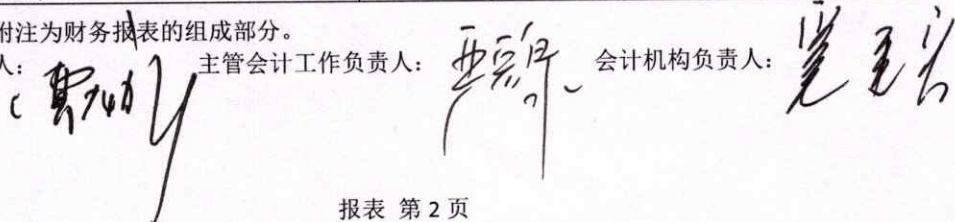 附注为财务报表的组成部分。
人： 主管会计工作负责人： 会计机构负责人：
报表 第 2 页